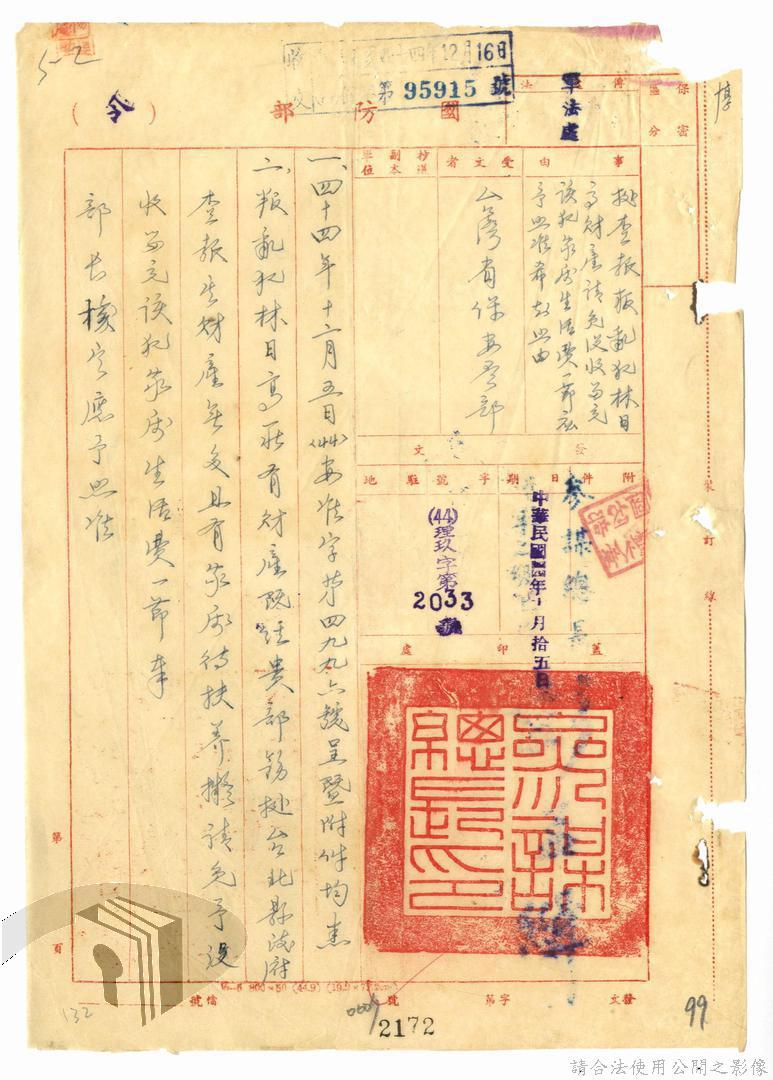 5-2
收
四十四年12月16日
第 95915 號
軍法處
保密
區分
國防部
(令)
事由
據查報叛亂犯林日
高財產請免沒收留充
該犯家屬生活費一節應
予照准希知照由
受文者
台灣省保安司令部
抄送
副本
單位
發文
附件
日期
中華民國四四年十月拾五日
字號
(44)理玖字第
2033
號
駐地
蓋印處
參謀總長
參謀總長印
一、四十四年十一月五日(44)安准字第四九九六號呈暨附件均悉
二、叛亂犯林日高所有財產既經貴部飭據台北縣政府
查報其財產無多且有家屬待扶養擬請免予沒
收留充該犯家屬生活費一節奉
部長核定應予照准
裝
訂
線
第
頁
發文 字第 號
檔號
2172
132
99
請合法使用公開之影像